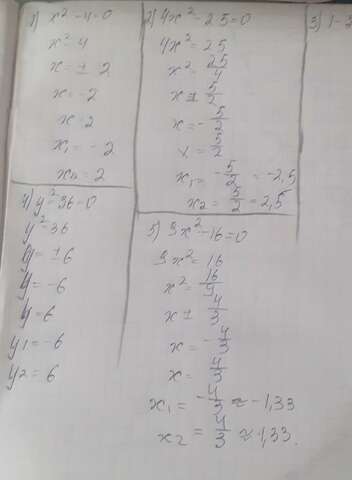 1) x²-4=0
x²=4
x=±2
x=-2
x=2
x₁=-2
x₂=2
2) 4x²-25=0
4x²=25
x²=25/4
x±5/2
x=-5/2
x=5/2
x₁=-5/2=-2,5
x₂=5/2=2,5
3) 1-
4) y²-36=0
y²=36
y=±6
y=-6
y=6
y1=-6
y2=6
5) 9x²-16=0
9x²=16
x²=16/9
x±4/3
x=-4/3
x=4/3
x₁=-4/3≈-1,33
x₂=4/3≈1,33.